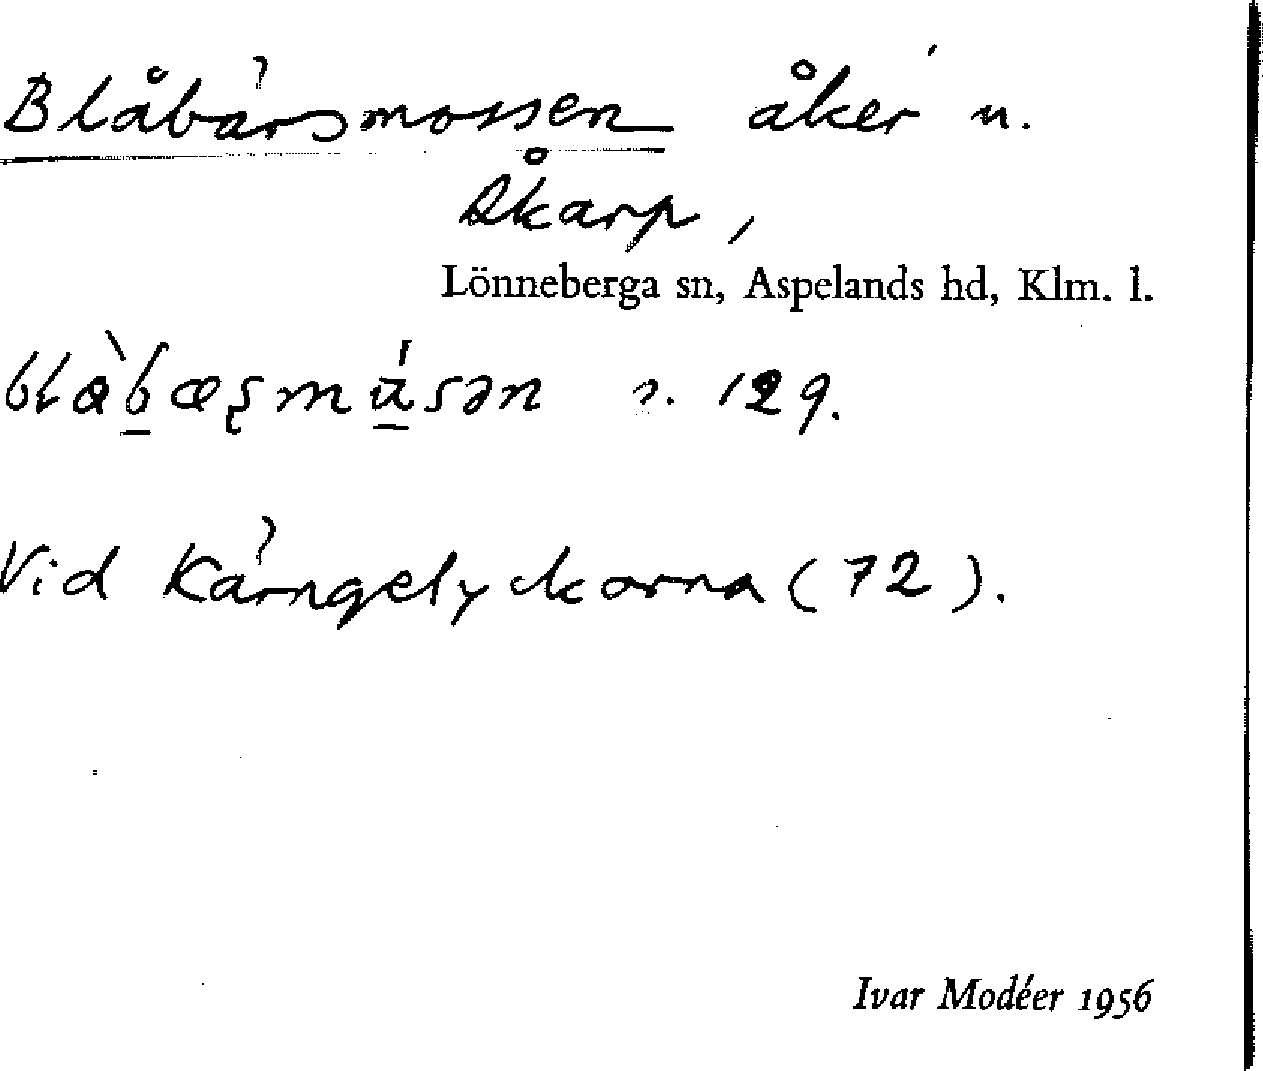 Blåbärsmossen åker u.
Åkarp,
Lönneberga sn, Aspelands hd, Klm. l.
blɑ̀bæʂmu̇́sən n. 129.
Vid Kärngelyckorna (72).
Ivar Modéer 1956